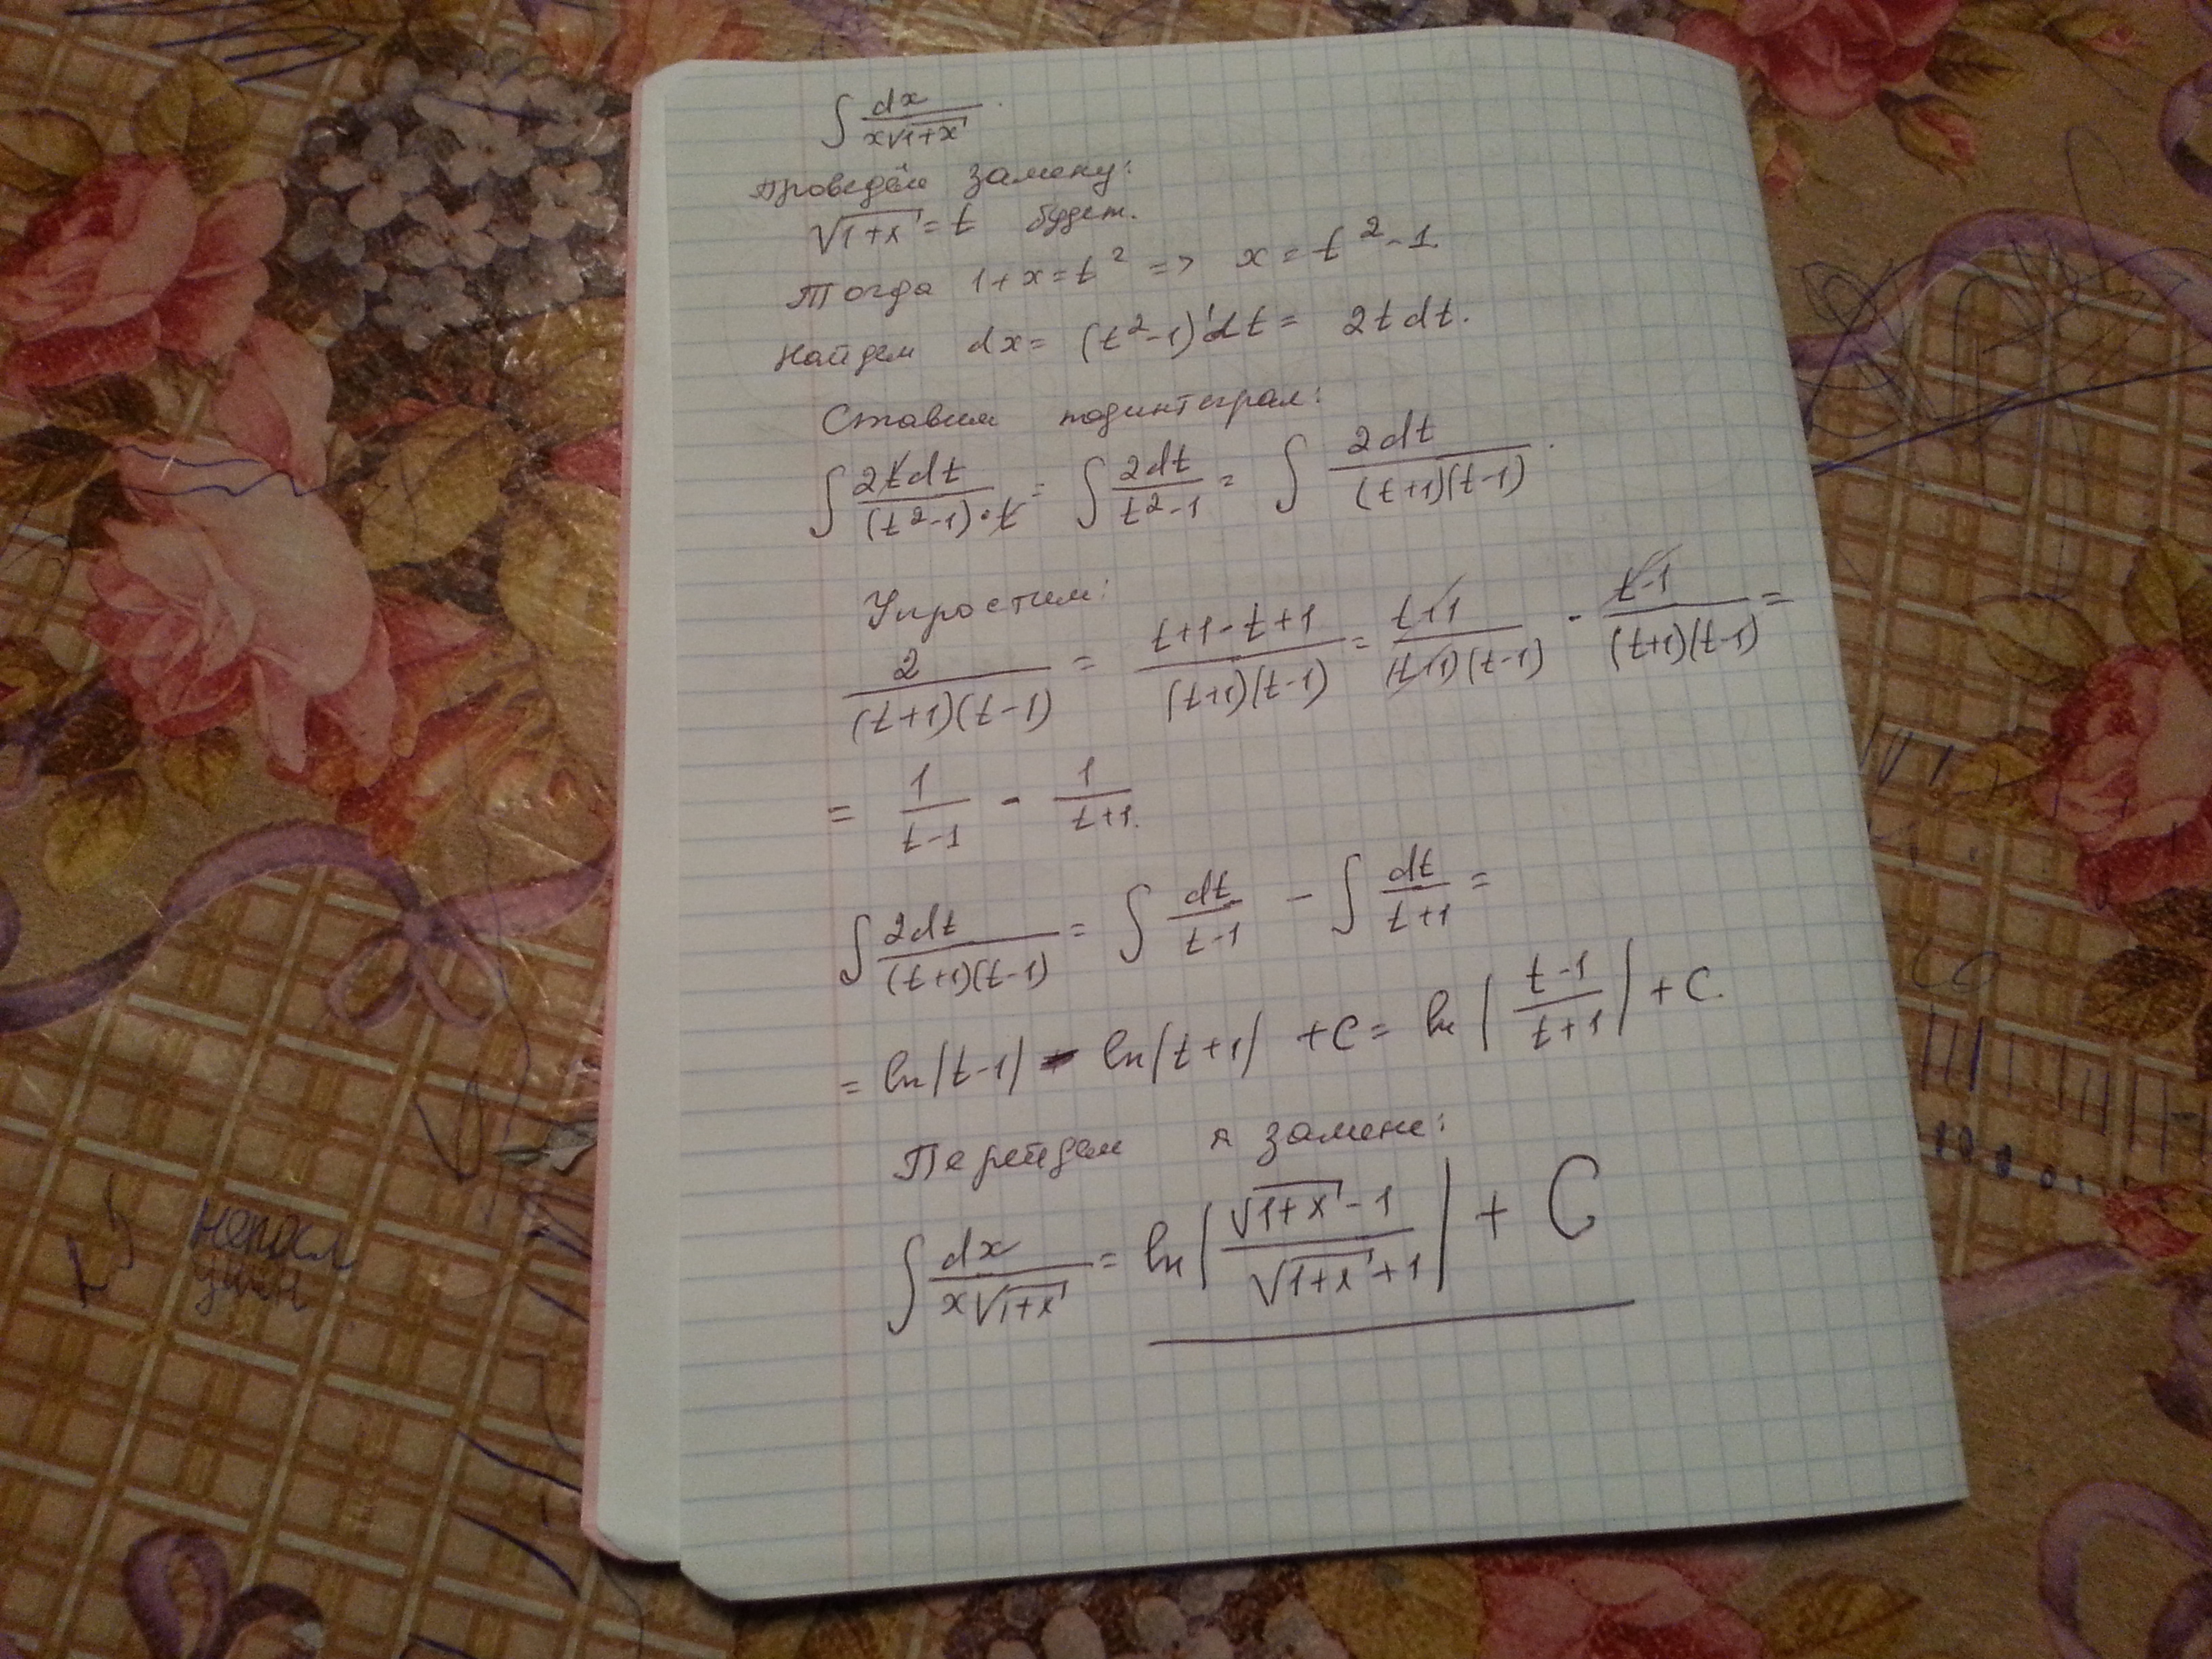 ∫ dx / (x√(1+x)).
Проведём замену:
√(1+x) = t будет.
Тогда 1+x = t² => x = t² - 1.
Найдем dx = (t² - 1)'dt = 2t dt.
Ставим подинтеграл:
∫ 2t dt / ((t² - 1) · t) = ∫ 2dt / (t² - 1) = ∫ 2dt / ((t+1)(t-1)).
Упростим:
2 / ((t+1)(t-1)) = (t+1-t+1) / ((t+1)(t-1)) = (t+1) / ((t+1)(t-1)) - (t-1) / ((t+1)(t-1)) =
= 1 / (t-1) - 1 / (t+1).
∫ 2dt / ((t+1)(t-1)) = ∫ dt / (t-1) - ∫ dt / (t+1) =
= ln|t-1| - ln|t+1| + C = ln |(t-1) / (t+1)| + C.
Перейдем к замене:
∫ dx / (x√(1+x)) = ln |(√(1+x) - 1) / (√(1+x) + 1)| + C